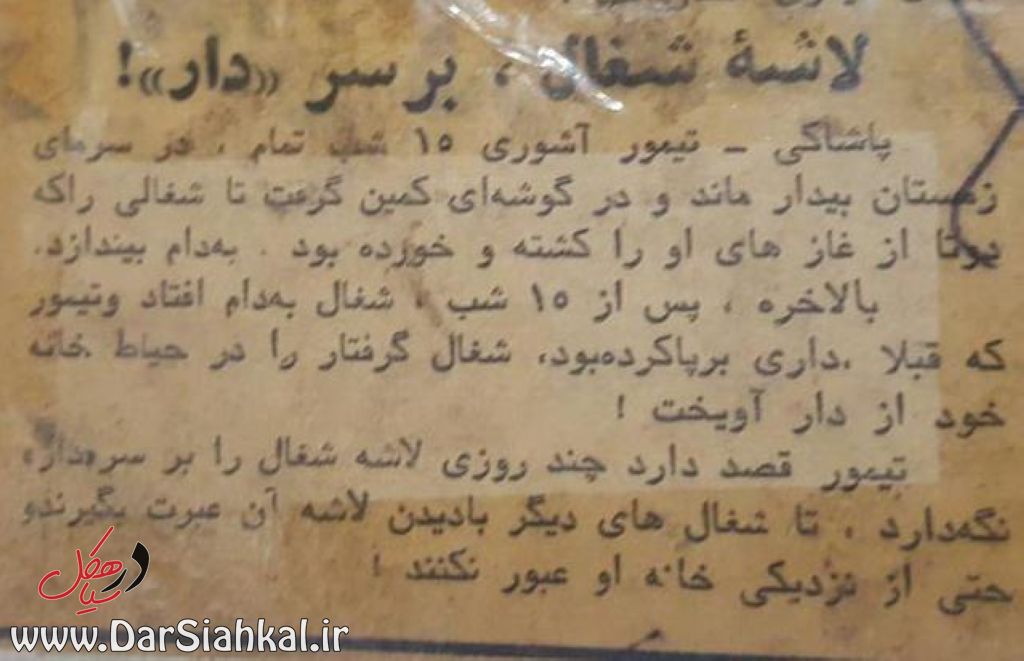 لاشهٔ شغال ، بر سر «دار»!
پاشاکی ـ تیمور آشوری ۱۵ شب تمام ، در سرمای
زمستان بیدار ماند و در گوشه‌ای کمین گرفت تا شغالی راکه
از غاز های او را کشته و خورده بود . به‌دام بیندازد.
بالاخره ، پس از ۱۵ شب ، شغال به‌دام افتاد وتیمور
که قبلا ،داری برپاکرده‌بود، شغال گرفتار را در حیاط خانه
خود از دار آویخت !
تیمور قصد دارد چند روزی لاشه شغال را بر سر«دار»
نگه‌دارد ، تا شغال های دیگر بادیدن لاشه آن عبرت بگیرندو
حتی از نزدیکی خانه او عبور نکنند !
در سیاهکل
www.DarSiahkal.ir